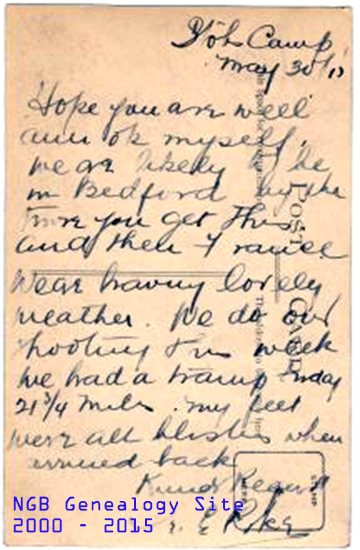 Camp
May 30/15
Hope you are well
am ok myself.
we are likely to be
in Bedford by the
time you get this
and then France
We are having lovely
weather. We do our
shooting this week
we had a tramp today
21 3/4 miles. my feet
were all blisters when
arrived back
Kind Regards
E
POST CARD
STAMP
HERE
NGB Genealogy Site
2000 - 2015